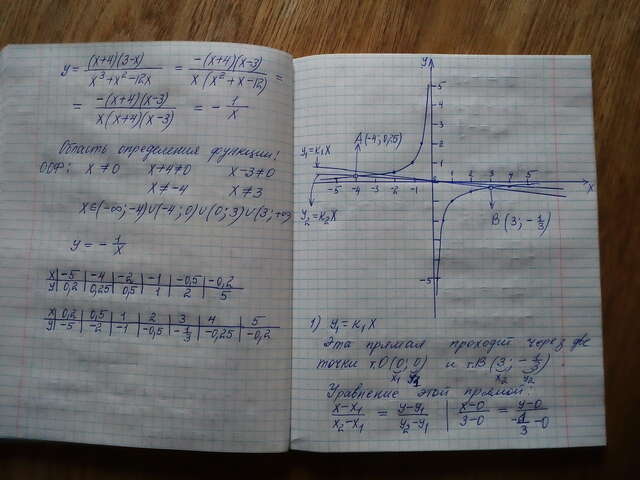 y = (x+4)(3-x) / x³+x²-12x = -(x+4)(x-3) / x(x²+x-12) =
= -(x+4)(x-3) / x(x+4)(x-3) = - 1/x
Область определения функции:
ООФ: x≠0 x+4≠0 x-3≠0
x≠-4 x≠3
x∈(-∞;-4)∪(-4;0)∪(0;3)∪(3;+∞
y = - 1/x
x -5 -4 -2 -1 -0,5 -0,2
y 0,2 0,25 0,5 1 2 5
x 0,2 0,5 1 2 3 4 5
y -5 -2 -1 -0,5 -1/3 -0,25 -0,2
y
5
A(-4;0,25)
y₁=k₁x
1
-5 -4 -2 -1 1 2 3 4 5 x
y₂=k₂x
B(3;-1/3)
-5
1) y₁=k₁x
Эта прямая проходит через две
точки т.O(0;0) и т.B(3;-1/3).
x₁ y₁ x₂ y₂
Уравнение этой прямой:
x-x₁ / x₂-x₁ = y-y₁ / y₂-y₁ | x-0 / 3-0 = y-0 / -1/3-0